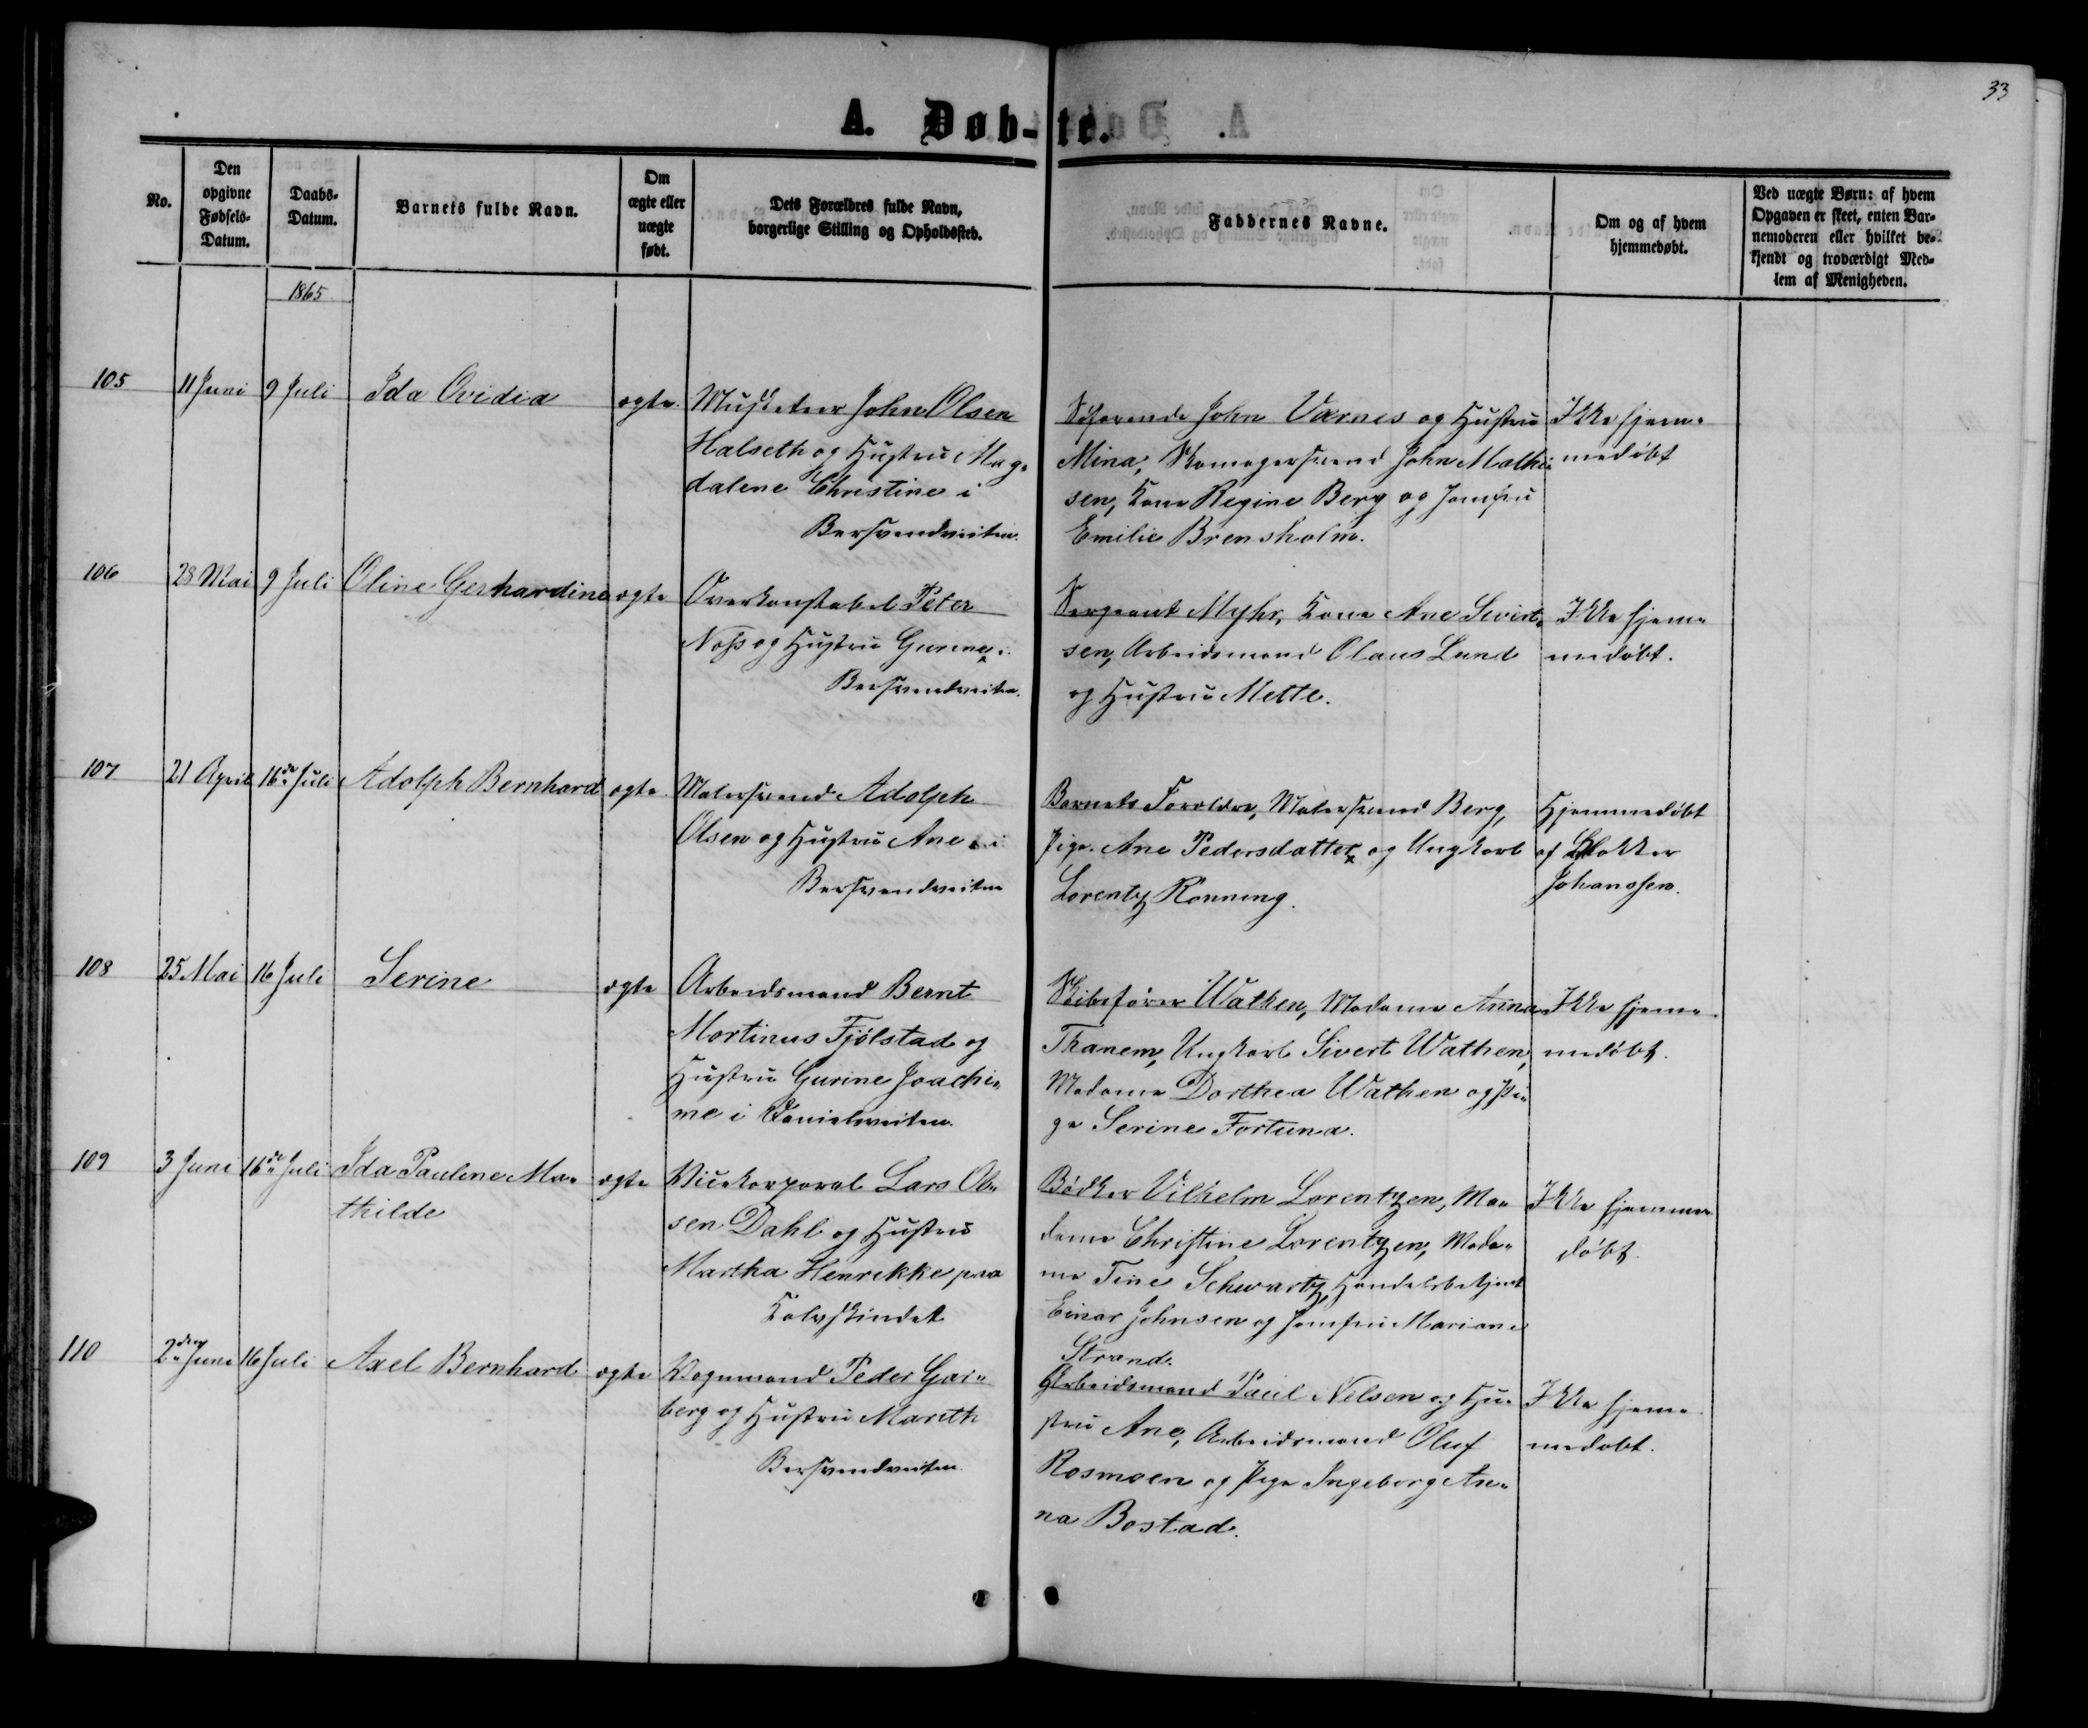 33
A. Døb-te.
No.
Den
opgivne
Fødsels-
Datum.
Daabs-
Datum.
Barnets fulde Navn.
Om
ægte eller
uægte
født.
Dets Forældres fulde Navn,
borgerlige Stilling og Opholdssted.
Faddernes Navne.
Om og af hvem
hjemmedøbt.
Ved uægte Børn: af hvem
Opgaven er skeet, enten Bar-
nemoderen eller hvilket be-
kjendt og troværdigt Med-
lem af Menigheden.
1865
105
11 Juni
9 Juli
Ida Ovidia
ægte.
Musketeer John Olsen
Halseth og Hustru Mag-
dalene Christine i
Bersvendveiten.
Søfarende John Værnes og Hustru
Mina, Skomagersvend John Mathi-
sen, Kone Regine Berg og Jomfru
Emilie Brensholm.
Ikke hjem-
medøbt
106
28 Mai
9 Juli
Oline Gerhardine
ægte
Overkonstabel Peter
Noss og Hustru Gurine i
Bersvendveiten.
Sergeant Myhr, Kone Ane Sivert-
sen, Arbeidsmand Olaus Lund
og Hustru Mette.
Ikke hjem-
medøbt.
107
21 April
16de Juli
Adolph Bernhard
ægte
Malersvend Adolph
Olsen og Hustru Ane i
Bersvendveiten
Barnets Forældre, Malersvend Berg,
Pige Ane Pedersdatter og Ungkarl
Lorentz Rønning.
Hjemmedøbt
af Klokker
Johanssen.
108
25 Mai
16 Juli
Serine
ægte
Arbeidsmand Bernt
Martinus Fjølstad og
Hustru Gurine Joachi-
me i Danielsveiten.
Skibsfører Wathen, Madame Anna
Thanem, Ungkarl Sivert Wathen,
Madame Dorthea Wathen og Pi-
ge Serine Fortuna.
Ikke hjem-
medøbt.
109
3 Juni
16de Juli
Ida Pauline Ma-
thilde
ægte
Vicekorporal Lars Ol-
sen Dahl og Hustru
Martha Henrikke paa
Kalvskindet
Bødker Vilhelm Lorentzen, Ma-
dame Christine Lorentzen, Mada-
me Tine Schwartz, Handelsbetjent
Einar Johnsen og Jomfru Mariane
Strand.
Ikke hjemme-
døbt.
110
2den Juni
16 Juli
Axel Bernhard
ægte
Vognmand Peder Gar-
berg og Hustru Marith
Bersvendveiten.
Arbeidsmand Paul Nilsen og Hu-
stru Ane, Arbeidsmand Oluf
Rosmoen og Pige Ingeborg An-
na Bostad.
Ikke hjem-
medøbt.